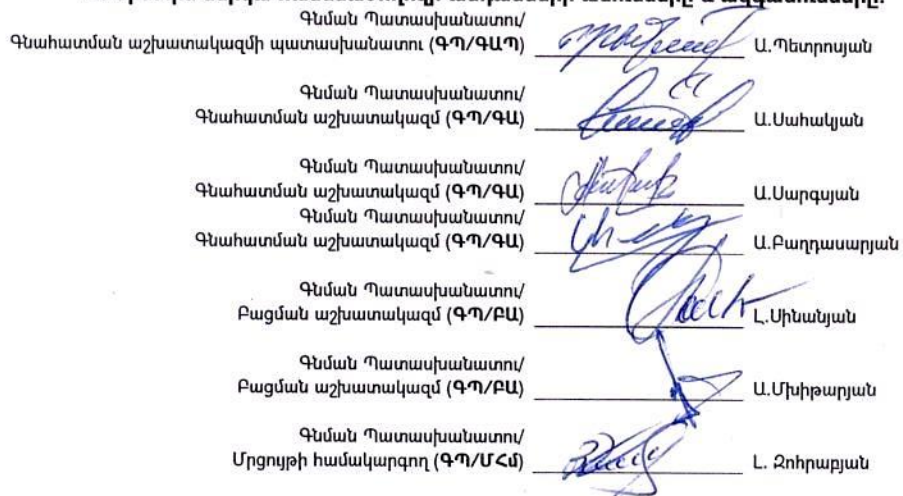 Գնման Պատասխանատու/
Գնահատման աշխատակազմի պատասխանատու (ԳՊ/ԳԱՊ) Ա.Պետրոսյան
Գնման Պատասխանատու/
Գնահատման աշխատակազմ (ԳՊ/ԳԱ) Ա.Սահակյան
Գնման Պատասխանատու/
Գնահատման աշխատակազմ (ԳՊ/ԳԱ) Ա.Սարգսյան
Գնման Պատասխանատու/
Գնահատման աշխատակազմ (ԳՊ/ԳԱ) Ա.Բաղդասարյան
Գնման Պատասխանատու/
Բացման աշխատակազմ (ԳՊ/ԲԱ) Լ.Սինանյան
Գնման Պատասխանատու/
Բացման աշխատակազմ (ԳՊ/ԲԱ) Ա.Մխիթարյան
Գնման Պատասխանատու/
Մրցույթի համակարգող (ԳՊ/ՄՀմ) Լ. Զոհրաբյան